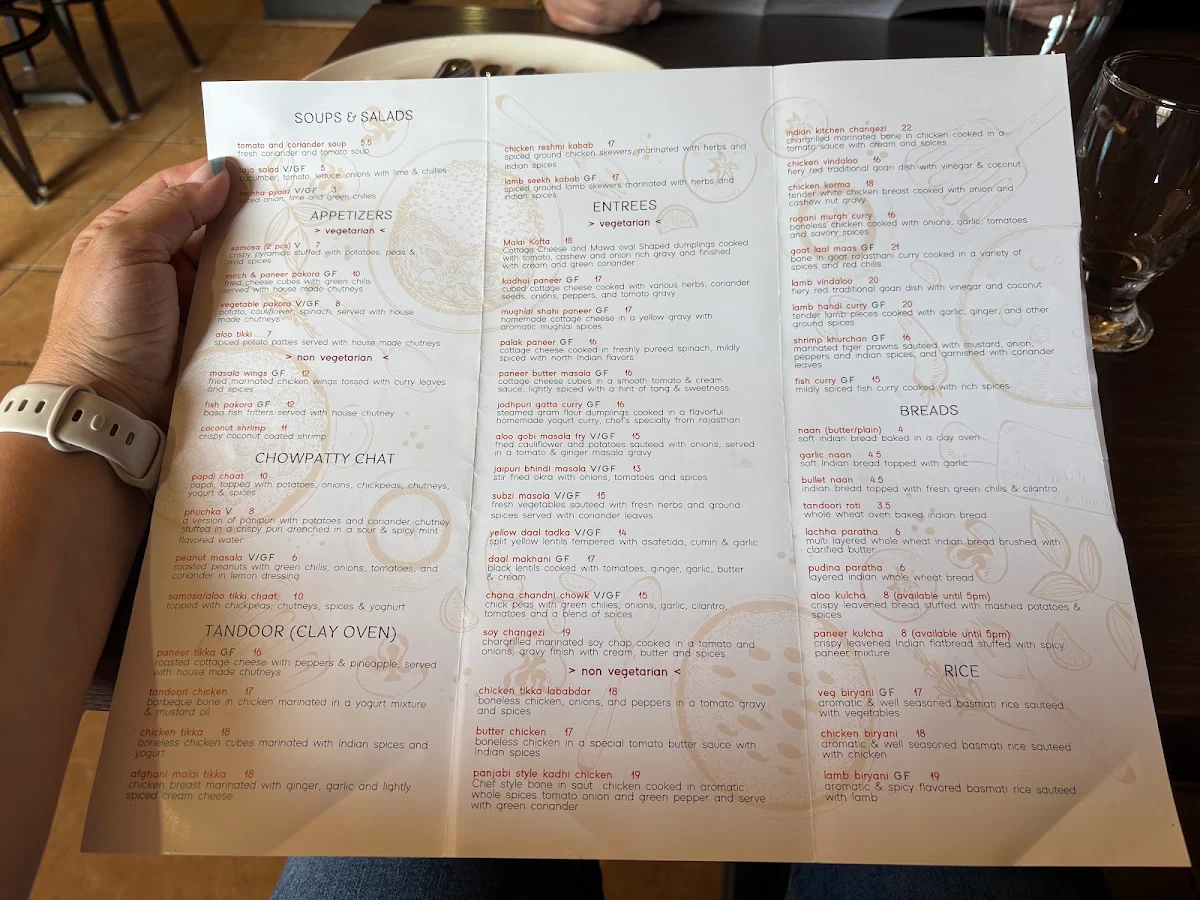 SOUPS & SALADS
tomato and coriander soup 5.5
fresh coriander and tomato soup
salad V/GF 5
cucumber, tomato, lettuce, onions with lime & chilies
lachha pyaaz V/GF 3
sliced onion, lime and green chilies
APPETIZERS
> vegetarian <
samosa (2 pcs) V 7
crispy pyramids stuffed with potatoes, peas &
mild spices
mirch & paneer pakora GF 10
fried cheese cubes with green chilis
served with house made chutneys
vegetable pakora V/GF 8
potato, cauliflower, spinach, served with house
made chutneys
aloo tikki 7
spiced potato patties served with house made chutneys
> non vegetarian <
masala wings GF 12
fried marinated chicken wings tossed with curry leaves
and spices
fish pakora GF 12
basa fish fritters served with house chutney
coconut shrimp 11
crispy coconut coated shrimp
CHOWPATTY CHAT
papdi chaat 10
papdi, topped with potatoes, onions, chickpeas, chutneys,
yogurt & spices
phuchka V 8
a version of panipuri with potatoes and coriander chutney
stuffed in a crispy puri drenched in a sour & spicy mint
flavored water
peanut masala V/GF 6
roasted peanuts with green chilis, onions, tomatoes, and
coriander in lemon dressing
samosa/aloo tikki chaat 10
topped with chickpeas, chutneys, spices & yoghurt
TANDOOR (CLAY OVEN)
paneer tikka GF 16
roasted cottage cheese with peppers & pineapple, served
with house made chutneys
tandoori chicken 17
barbeque bone in chicken marinated in a yogurt mixture
& mustard oil
chicken tikka 18
boneless chicken cubes marinated with Indian spices and
yogurt
afghani malai tikka 18
chicken breast marinated with ginger, garlic and lightly
spiced cream cheese
chicken reshmi kabab 17
spiced ground chicken skewers, marinated with herbs and
indian spices
lamb seekh kabab GF 17
spiced ground lamb skewers marinated with herbs and
indian spices
ENTREES
> vegetarian <
Malai Kofta 18
Cottage Cheese and Mawa oval Shaped dumplings cooked
with tomato, cashew and onion rich gravy and finished
with cream and green coriander
kadhai paneer GF 17
cubed cottage cheese cooked with various herbs, coriander
seeds, onions, peppers, and tomato gravy
mughlai shahi paneer GF 17
homemade cottage cheese in a yellow gravy with
aromatic mughlai spices
palak paneer GF 16
cottage cheese cooked in freshly pureed spinach, mildly
spiced with north Indian flavors
paneer butter masala GF 16
cottage cheese cubes in a smooth tomato & cream
sauce, lightly spiced with a hint of tang & sweetness
jodhpuri gatta curry GF 16
steamed gram flour dumplings cooked in a flavorful
homemade yogurt curry, chef's specialty from rajasthan
aloo gobi masala fry V/GF 15
fried cauliflower and potatoes sauteed with onions, served
in a tomato & ginger masala gravy
jaipuri bhindi masala V/GF 13
stir fried okra with onions, tomatoes and spices
subzi masala V/GF 15
fresh vegetables sauteed with fresh herbs and ground
spices served with coriander leaves
yellow daal tadka V/GF 14
split yellow lentils tempered with asafetida, cumin & garlic
daal makhani GF 17
black lentils cooked with tomatoes, ginger, garlic, butter
& cream
chana chandni chowk V/GF 15
chick peas with green chilies, onions, garlic, cilantro,
tomatoes and a blend of spices
soy changezi 19
chargrilled marinated soy chap cooked in a tomato and
onions, gravy finish with cream, butter and spices
> non vegetarian <
chicken tikka lababdar 18
boneless chicken, onions, and peppers in a tomato gravy
and spices
butter chicken 17
boneless chicken in a special tomato butter sauce with
Indian spices
panjabi style kadhi chicken 19
Chef style bone in saut chicken cooked in aromatic
whole spices tomato onion and green pepper and serve
with green coriander
indian kitchen changezi 22
chargrilled marinated bone in chicken cooked in a
tomato sauce with cream and spices
chicken vindaloo 16
fiery red traditional goan dish with vinegar & coconut
chicken korma 18
tender white chicken breast cooked with onion and
cashew nut gravy
rogani murgh curry 16
boneless chicken cooked with onions, garlic, tomatoes
and savory spices
goat laal maas GF 21
bone in goat rajasthani curry cooked in a variety of
spices and red chilis
lamb vindaloo 20
fiery red traditional goan dish with vinegar and coconut
lamb handi curry GF 20
tender lamb pieces cooked with garlic, ginger, and other
ground spices
shrimp khurchan GF 16
marinated tiger prawns sauteed with mustard, onion,
peppers and indian spices, and garnished with coriander
leaves
fish curry GF 15
mildly spiced fish curry cooked with rich spices
BREADS
naan (butter/plain) 4
soft indian bread baked in a clay oven
garlic naan 4.5
soft Indian bread topped with garlic
bullet naan 4.5
indian bread topped with fresh green chilis & cilantro
tandoori roti 3.5
whole wheat oven baked indian bread
lachha paratha 6
multi layered whole wheat indian bread brushed with
clarified butter
pudina paratha 6
layered indian whole wheat bread
aloo kulcha 8 (available until 5pm)
crispy leavened bread stuffed with mashed potatoes &
spices
paneer kulcha 8 (available until 5pm)
crispy leavened Indian flatbread stuffed with spicy
paneer mixture
RICE
veg biryani GF 17
aromatic & well seasoned basmati rice sauteed
with vegetables
chicken biryani 18
aromatic & well seasoned basmati rice sauteed
with chicken
lamb biryani GF 19
aromatic & spicy flavored basmati rice sauteed
with lamb